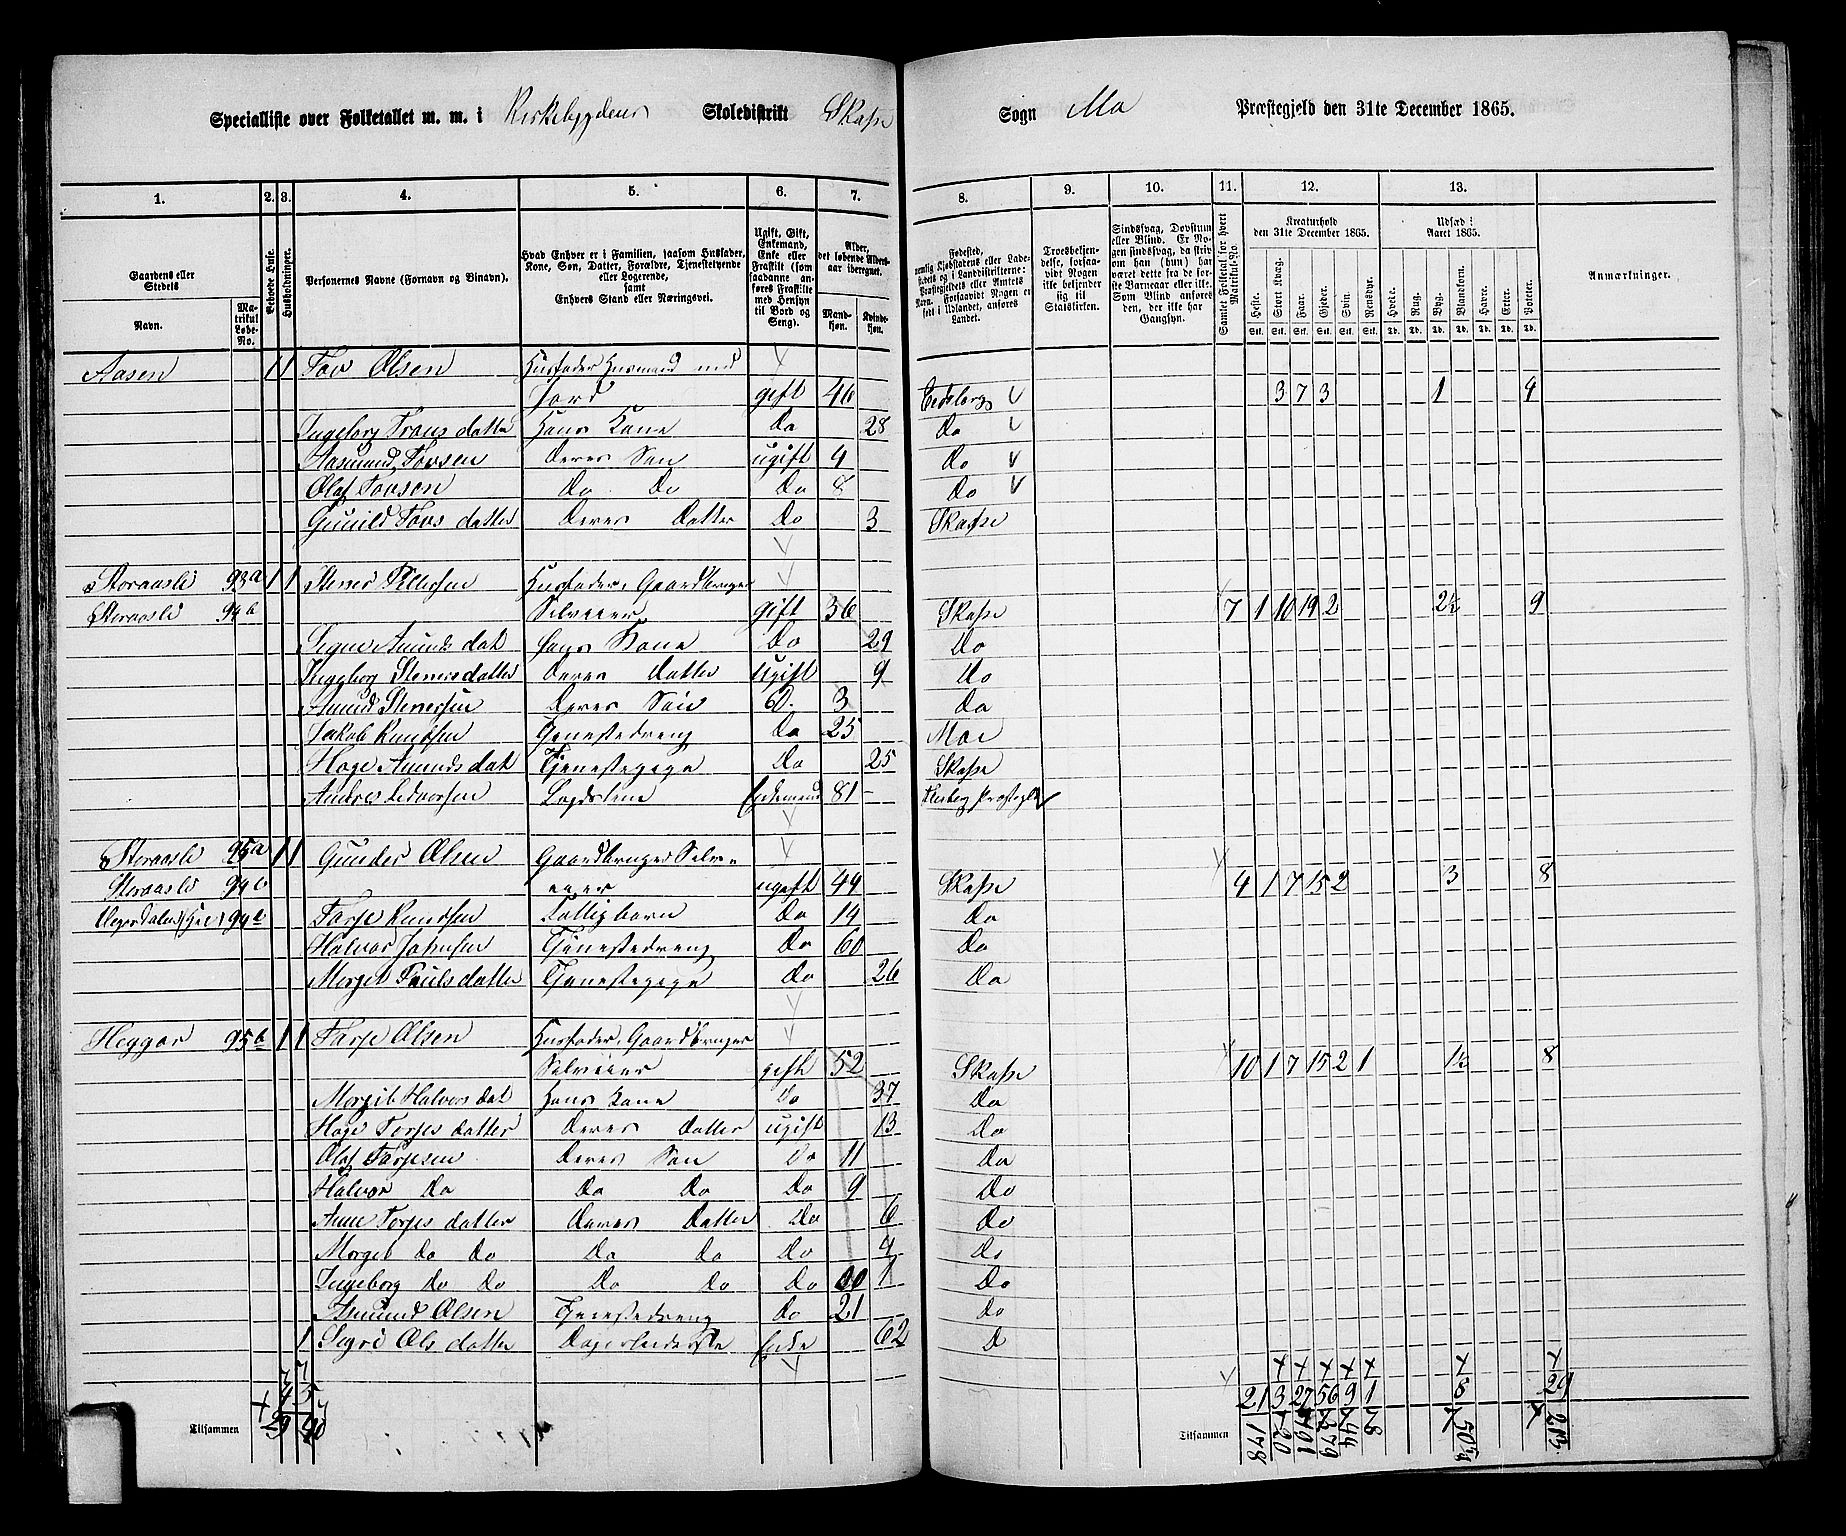 Specialliste over Folketallet m. m. i Kirkebygdens Skoledistrikt Skafse Sogn Mo Præstegjeld den 31te December 1865.
1. 2. 3. 4. 5. 6. 7. 8. 9. 10. 11. 12. 13.
Gaardens eller Stedets Navn. Matrikul Løbe-No. Beboede Huse. Husholdninger. Personernes Navne (Fornavn og Binavn). Hvad Enhver er i Familien, saasom Husfader, Kone, Søn, Datter, Forældre, Tjenestetyende eller Logerende, samt Enhvers Stand eller Næringsvei. Ugift, Gift, Enkemand, Enke eller Fraskilt (som saadanne anføres Fraskilte med Hensyn til Bord og Seng). Alder, det løbende Aldersaar iberegnet. Mandkjøn. Kvindekjøn.
Fødested, Troesbekjendelse, forsaavidt Nogen ikke bekjender sig til Statskirken. Sindssvag, Døvstum eller Blind. Samlet Folketal for hvert Matrikul-No. Kreaturhold den 31te December 1865. Udsæd i Aaret 1865. Anmærkninger.
Heste. Stort Kvæg. Faar. Gjeder. Svin. Rensdyr. Hvede. Rug. Byg. Blandkorn. Havre. Erter. Poteter.
Aasen 1 1 Tov Olsen Husfader Husmand med
Jord gift 46 Eidsborg 3 7 3 1 4
Ingeborg Tronsdatter Hans Kone Do 28 Do
Aasmund Tovsen Deres Søn ugift 4 Do
Olaf Tovsen Do Do Do 8 Do
Gunild Tovs datter Deres Datter Do 3 Skafse
Storaasli 93a 1 1 Stener Husfader, Gaardbruger
Storaasli 94b Selveier gift 36 Skafse 7 1 10 19 2 2½ 9
Signe Amunds dat Hans Kone Do 29 Do
Ingeborg Stenersdatter Deres Datter Ugift 9 Do
Amund Stenersen Deres Søn D. 3 Do
Jakob Knudsen Tjenestedreng Do 25 Moe
Hage Amunds dat Tjenestepige Do 25 Skafse
Andres Ledvorsen Lægdslem Enkemand 81
Storaasli 95a 1 1 Gunder Olsen Gaardbruger Selv-
Storaasli 94b eier ugift 49 Skafse 4 1 7 15 2 3 8
Tarje Knudsen Do 14 Do
Halvor Johnsen Tjenestedreng Do 60 Do
Morget Pauls datter Tjenestepige Do 26 Do
Heggar 95b 1 1 Tarje Olsen Husfader, Gaardbruger
Selveier gift 52 Skafse 10 1 7 15 2 1 1½ 8
Morgit Halvors dat Hans Kone Do 37 Do
Hage Tarjes datter Deres Datter ugift 13 Do
Olaf Tarjesen Deres Søn Do 11 Do
Halvor Do Do Do Do 9 Do
Anne Tarjes datter Deres Datter Do 6 Do
Morget do do Do do Do 4 Do
Ingeborg do Do Do do Do 1 Do
Asmund Olsen Tjenestedreng do 21 do
1 Sigri Ols datter Enke 62 D
4 5 21 3 27 56 9 1 8 29
Tilsammen 29 40 Tilsammen 178 20 191 279 44 8